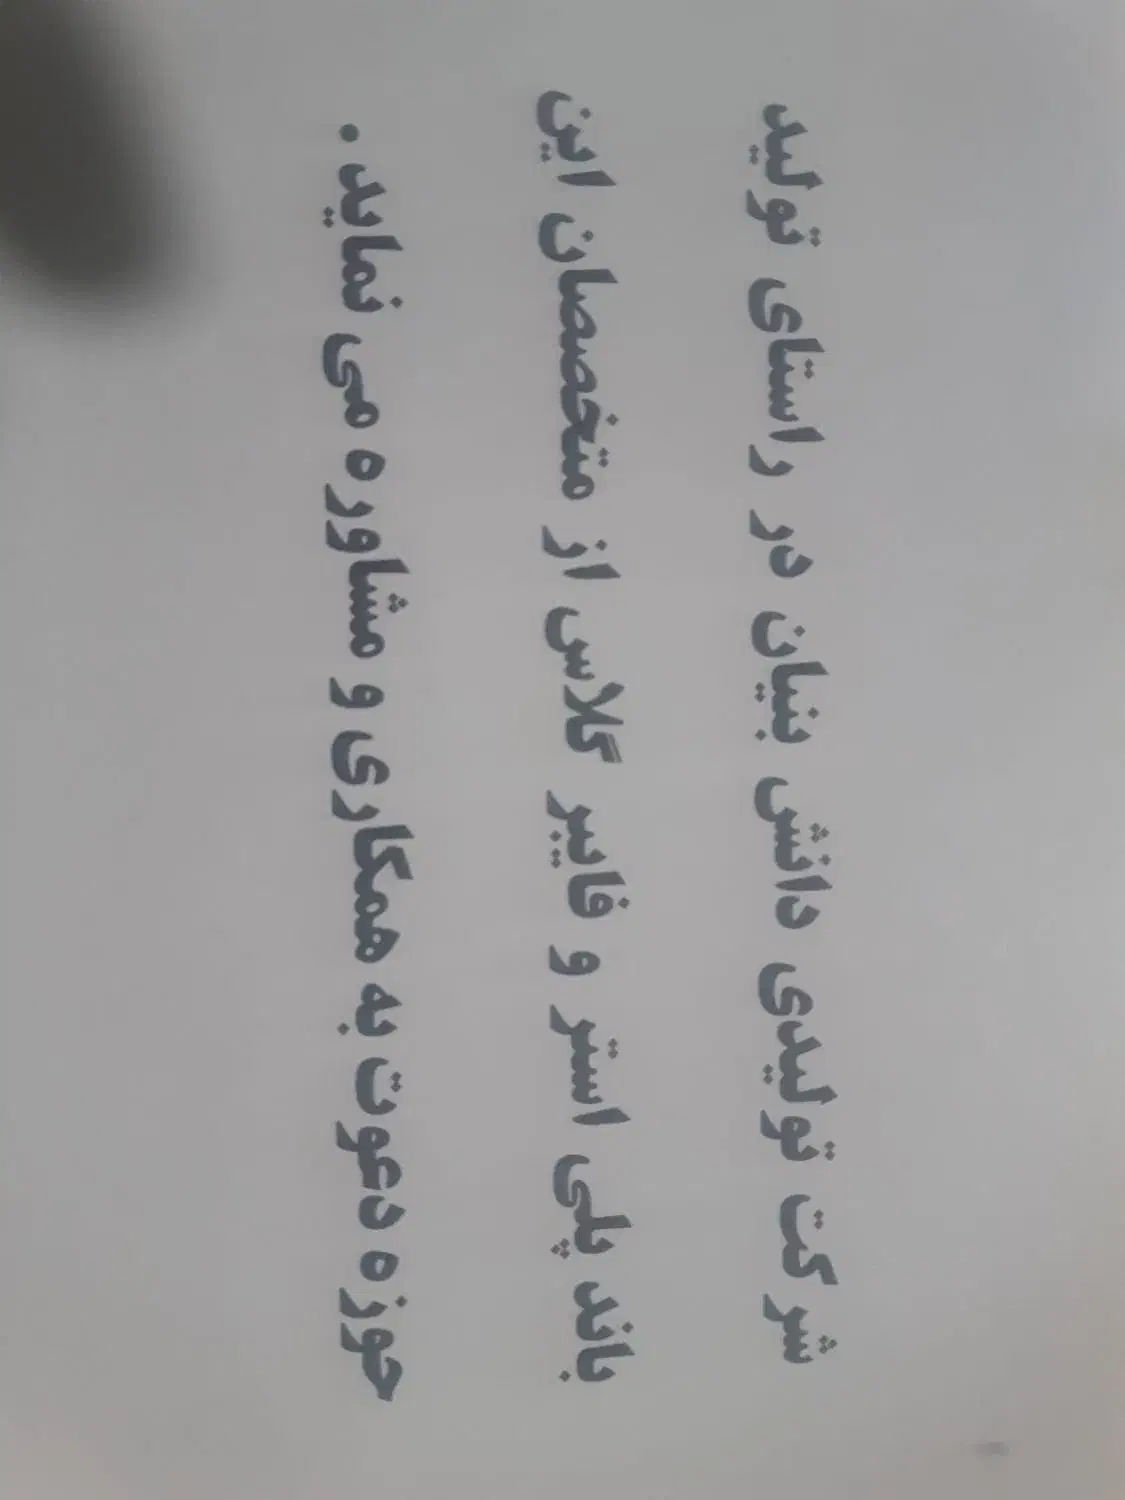 شرکت تولیدی دانش بنیان در راستای تولید
باند پلی استر و فایبر گلاس از متخصصان این
حوزه دعوت به همکاری و مشاوره می نماید.